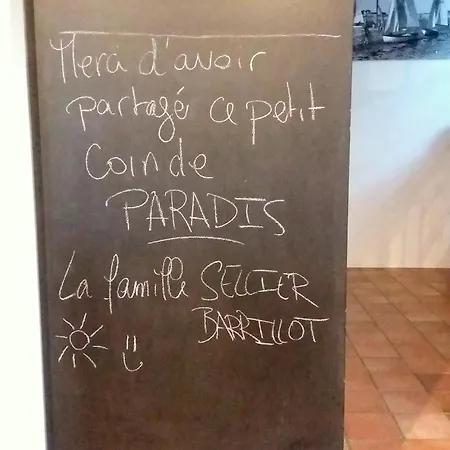 Merci d'avoir
partagé ce petit
Coin de
PARADIS
La famille SELLIER
BARRILLOT